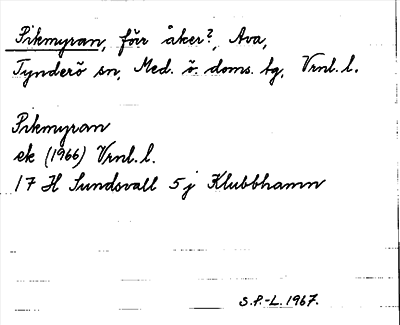 Pikmyran, förr åker?, Ava,
Tynderö sn, Med. ö. doms. tg, Vrnl. l.
Pikmyran
ek (1966) Vrnl. l.
17 H Sundsvall 5 j Klubbhamn
S.P.-L. 1967.